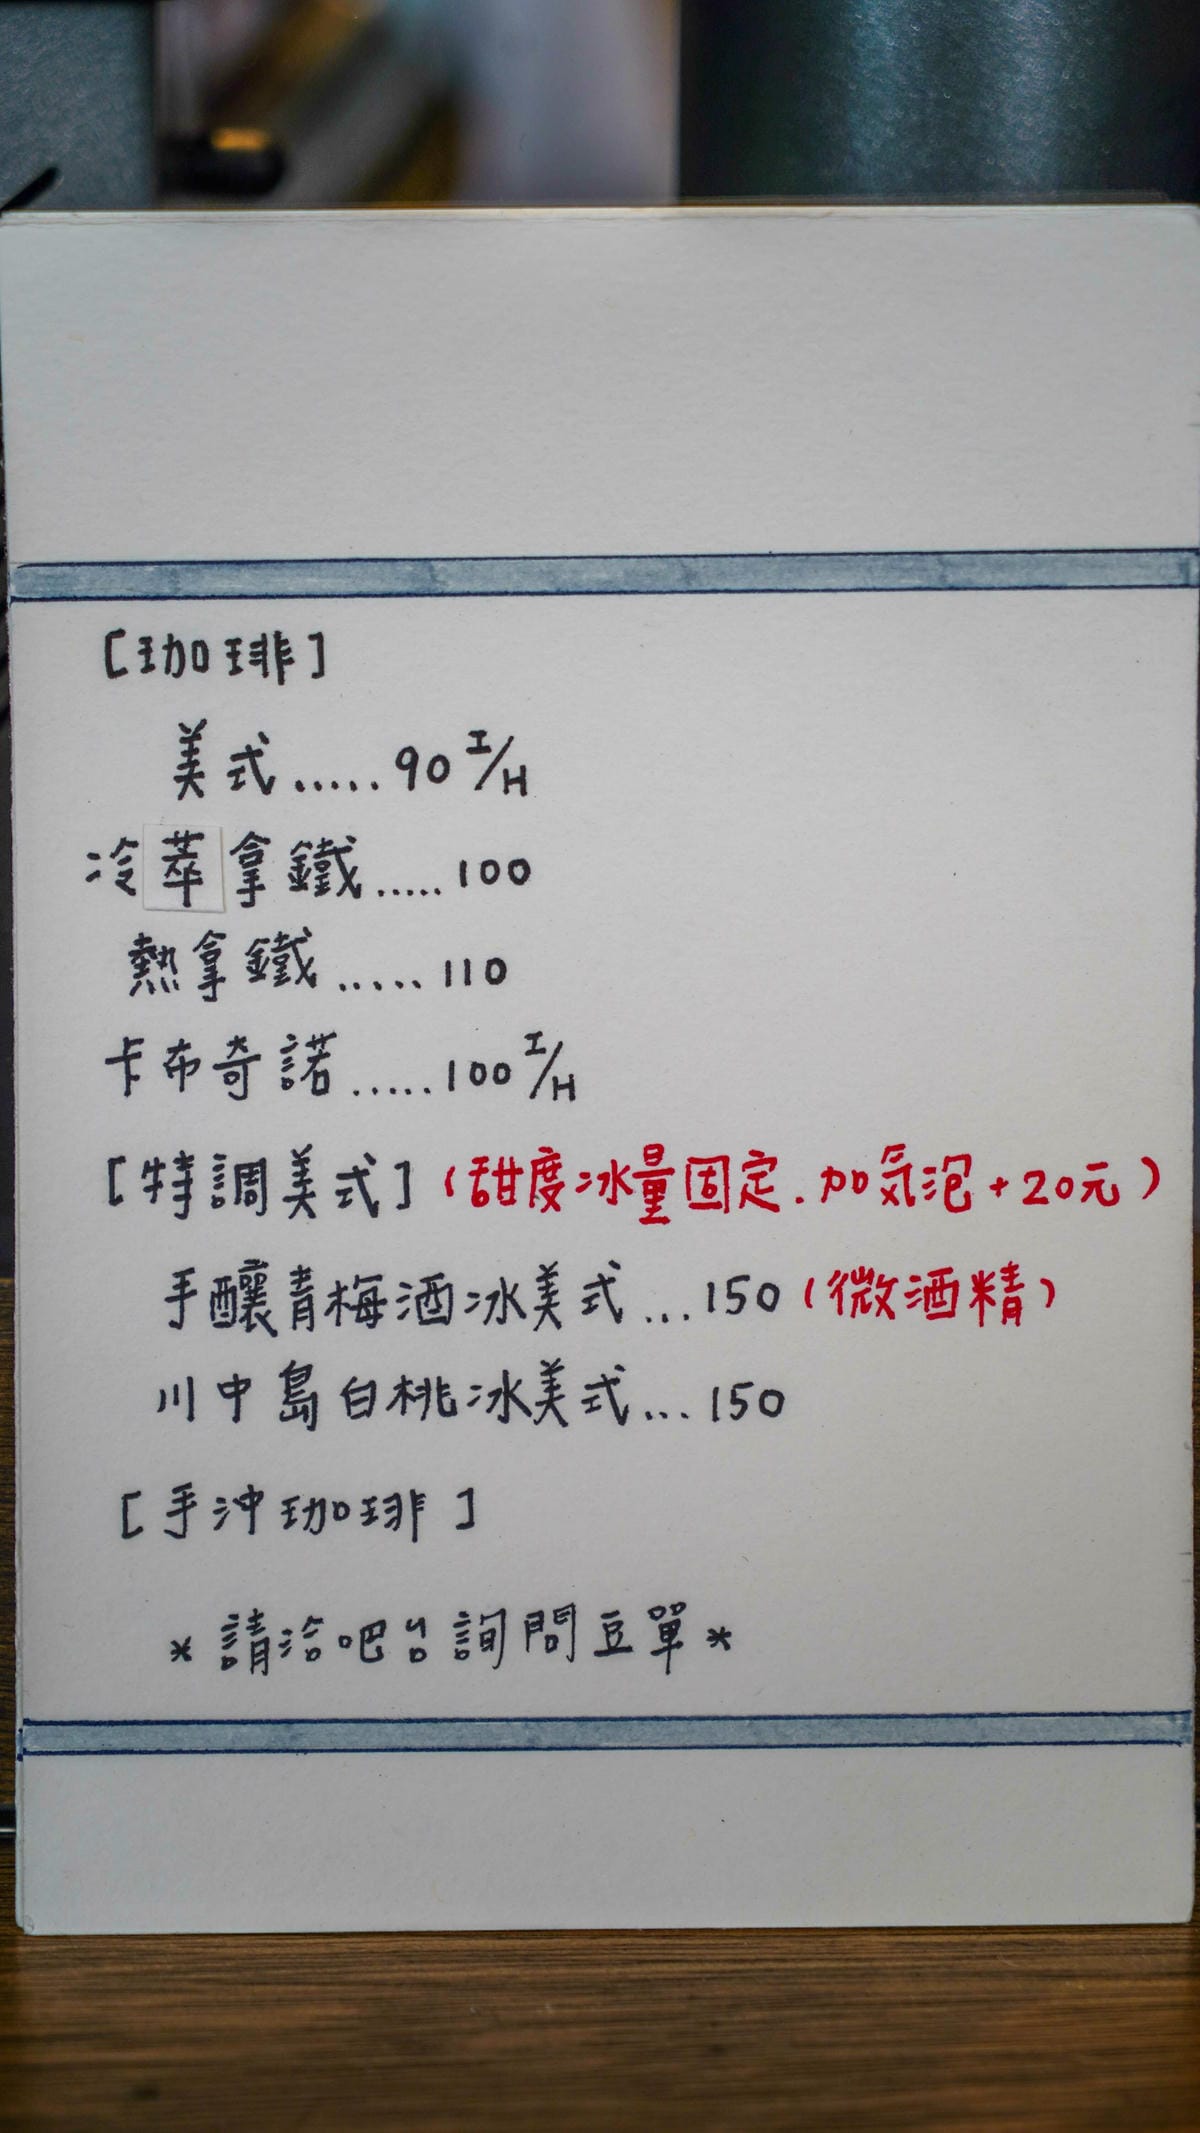 [珈琲]
美式.....90 I/H
冷萃拿鐵.....100
熱拿鐵.....110
卡布奇諾.....100 I/H
[特調美式](甜度冰量固定.加気泡+20元)
手釀青梅酒冰美式...150(微酒精)
川中島白桃冰美式...150
[手沖珈琲]
*請洽吧台詢問豆單*